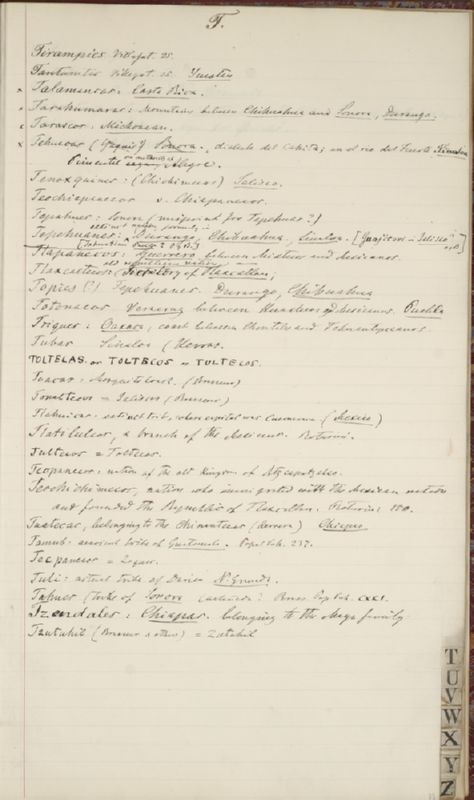 T.
Tirampies Villapat. 25.
Tantumitos Villapat. 25. Yucatan
x Talamancas: Costa Rica.
x Tarahumaras: Mountains between Chihuahua and Sonora, Durango.
x Tarascos: Michoacan.
x Tehuecos (Yaquis?) Sonora. dialecto del Cahita; en el rio del Fuerte. Sinaloa
Pimentel Alegre.
Tenoxquines: (Chichimecos) Jalisco.
Teochiapanecos v. Chiapanecos.
Topahues: Sonora (misprint for Tepehues?)
Tepehuanes: Durango, Chihuahua, Sinaloa.
Tlapanecos: Guerrero between Mixtecos and Mexicanos.
old republican nation
Tlaxcaltecas (Territory of Tlaxcallan)
Topics (?) Tepehuanes. Durango, Chihuahua
Totonacos Veracruz between Huastecos and Mexicanos. Puebla
Triques: Oaxaca, coast between Chontales and Tehuantepecanos.
Tubar Sinaloa (Hervas.
TOLTELAS. or TOLTECOS or TULTECOS.
Toacas: Mosquito Coast. (Brasseur)
Tonaltecos = Jalisco (Brasseur)
Tlahuicas: extinct tribe, whose capital was Cuernavaca (Mexico)
Tlatilulcas, a branch of the Mexicans. Boturini.
Tultecos = Toltecas.
Tecpanecos: nation of the old kingdom of Atzcapotzalco.
Teochichimecos, nation who immigrated with the Mexican nation
and founded the Republic of Tlaxcallan. Boturini 110.
Tuxtecas, belonging to the Chinantecas (Herrera) Chiapas
Tamub: ancient tribe of Guatemala. Popol Vuh. 237.
Tecpanecos =
Tuli: actual tribe of Darien N. Granada.
Tahues (tribe of Sonora Brass. Pop Vuh. CXCI.
Tzendales: Chiapas. belonging to the Maya family
Tzutuhil (Brasseur & others) = Zutuhil
T
U
V
W
X
Y
Z